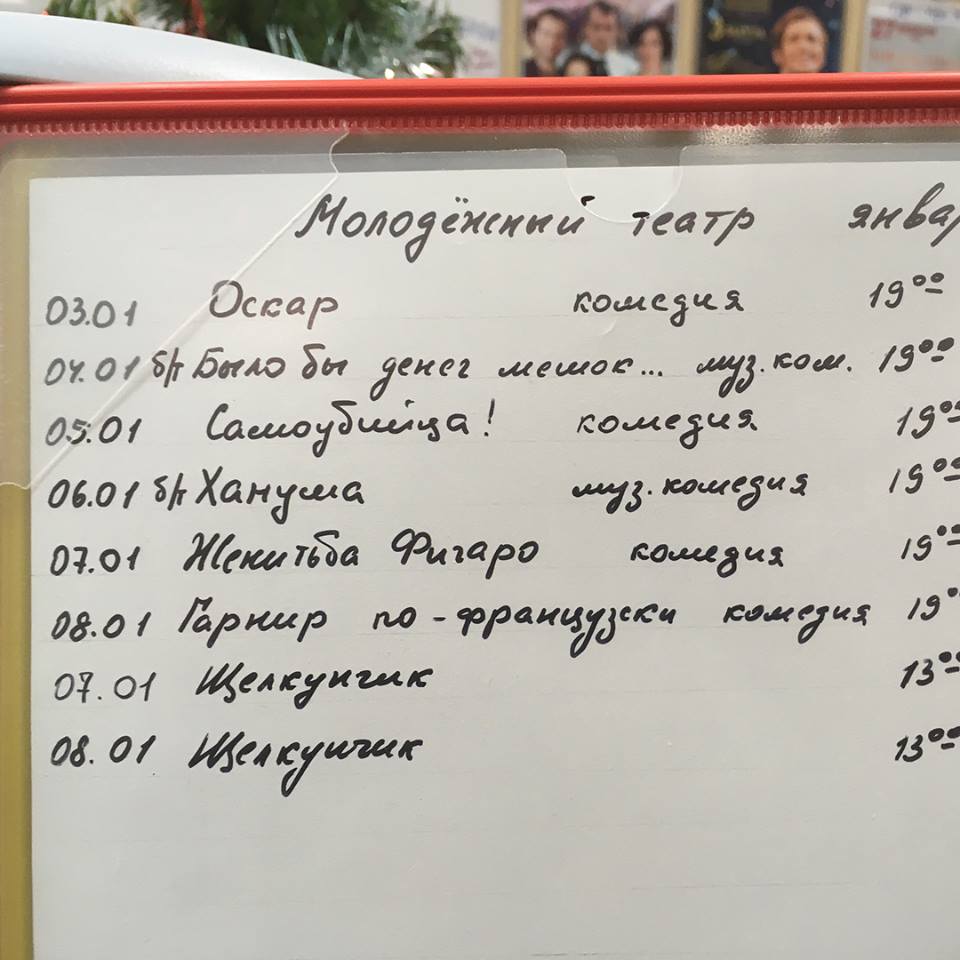 Молодёжный театр январ
03.01 Оскар комедия 19⁰⁰
04.01 б/р Было бы денег мешок... муз. ком. 19⁰⁰
05.01 Самоубийца! комедия 19⁰⁰
06.01 б/р Ханума муз. комедия 19⁰⁰
07.01 Женитьба Фигаро комедия 19⁰⁰
08.01 Гарнир по-французски комедия 19⁰
07.01 Щелкунчик 13⁰⁰
08.01 Щелкунчик 13⁰⁰